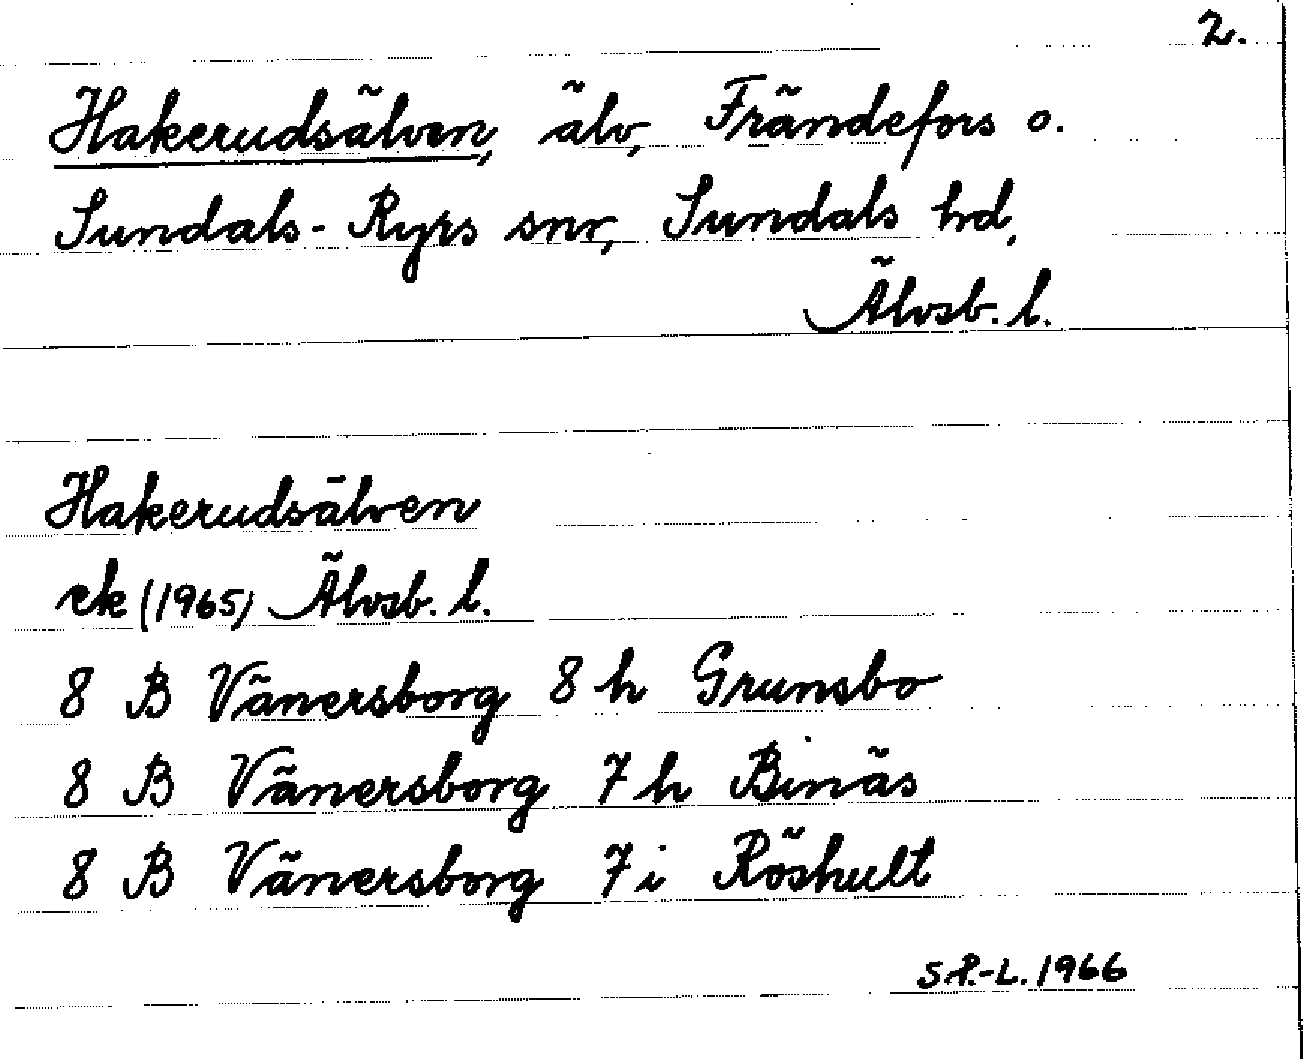 2.
Hakerudsälven, älv, Frändefors o.
Sundals-Ryrs snr, Sundals hd,
Älvsb. l.
Hakerudsälven
ek (1965) Älvsb. l.
8 B Vänersborg 8 h Grunsbo
8 B Vänersborg 7 h Binäs
8 B Vänersborg 7 i Röshult
S P.-L. 1966